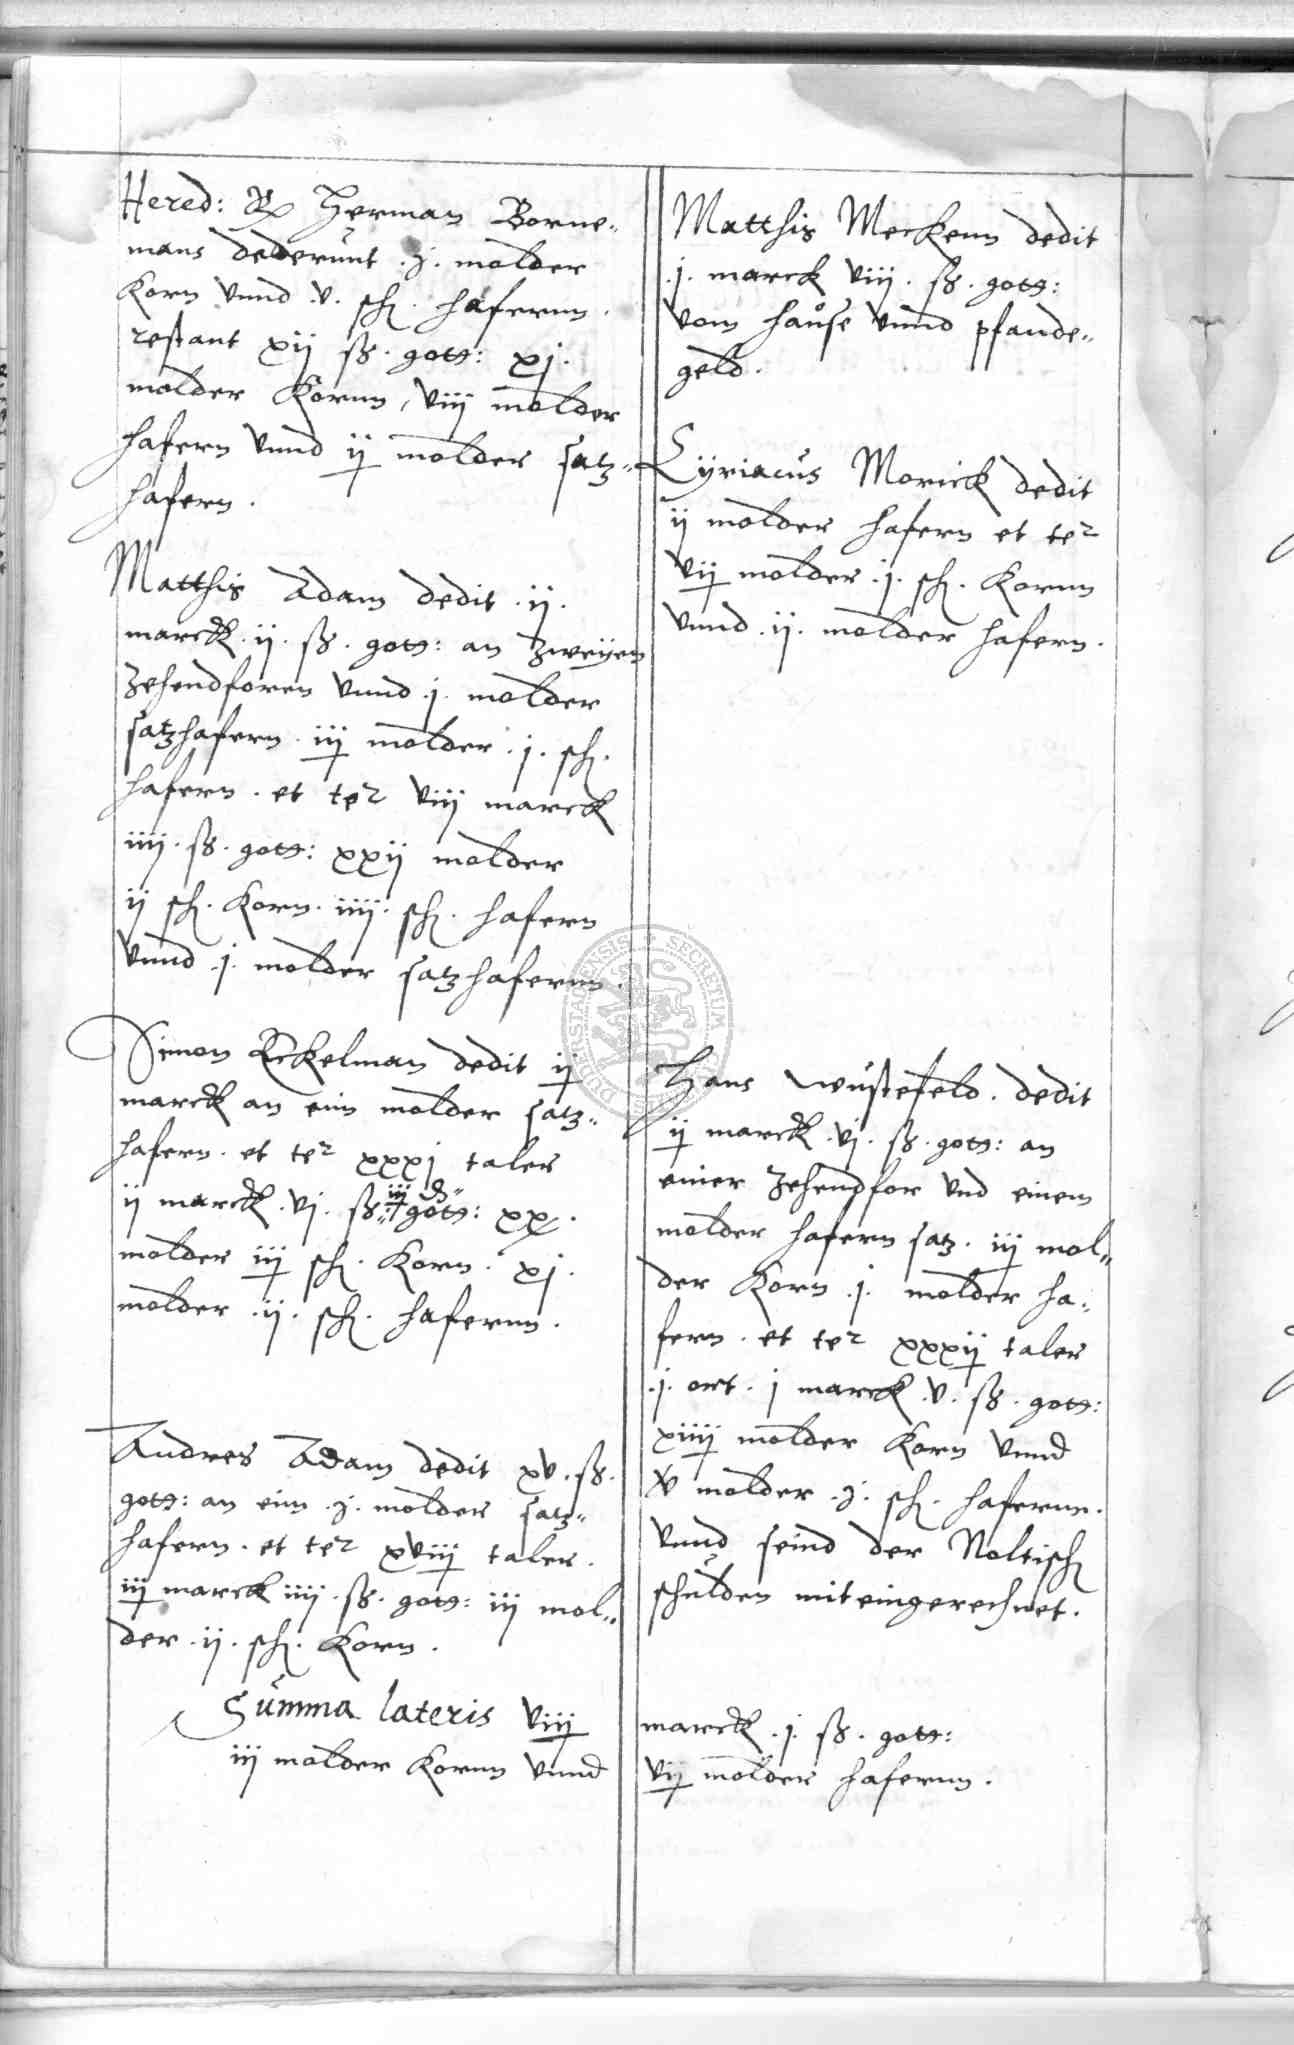 Hered: Herman Borne„
mans dederunt .j. molder
Korn vnnd .v. sch. hafernn.
restant xij ß. gott: xj.
molder Kornn, viij molder
hafern vnnd ij molder satz„
hafern.
Matthis Adam dedit .ij.
marck .ij. ß. gott: an zweyen
zehendforen vnnd .j. molder
satzhafern. iij molder .j. sch.
hafern. et ter viij marck
iiij. ß. gott: xxij molder
ij sch. Korn. iiij. sch. hafern
vnnd .j. molder satzhafernn.
Simon Eckelman dedit ij
marck an ein molder satz„
hafern. et ter xxxj taler
ij marck .vj. ß. iij gott: xx.
molder iij sch. Korn. xj.
molder .ij. sch. hafernn.
Andres Adam dedit xv. ß.
gott: an ein .j. molder satz„
hafern. et ter xviij taler.
iij marck iiij. ß. gott: iij mol„
der .ij. sch. Korn.
Summa lateris viij
iij molder Kornn vnnd
Matthis Meckenn dedit
.j. marck viij. ß. gott:
vom hause vnnd pfande„
geld.
Cyriacus Morick dedit
ij molder hafern et ter
vij molder .j. sch. Kornn
vnnd .ij. molder hafern.
Hans Wustefeld. dedit
ij marck .vj. ß. gott: an
einer zehendfor vnd einem
molder hafern satz. iij mol„
der Korn .j. molder ha„
fern. et ter xxxij taler
.j. ort. j marck .v. ß. gott:
xiiij molder Korn vnnd
v molder .j. sch. hafernn.
vnnd seind der Noltisch
schulden mit eingerechnet.
marck .j. ß. gott:
vij molder hafernn.